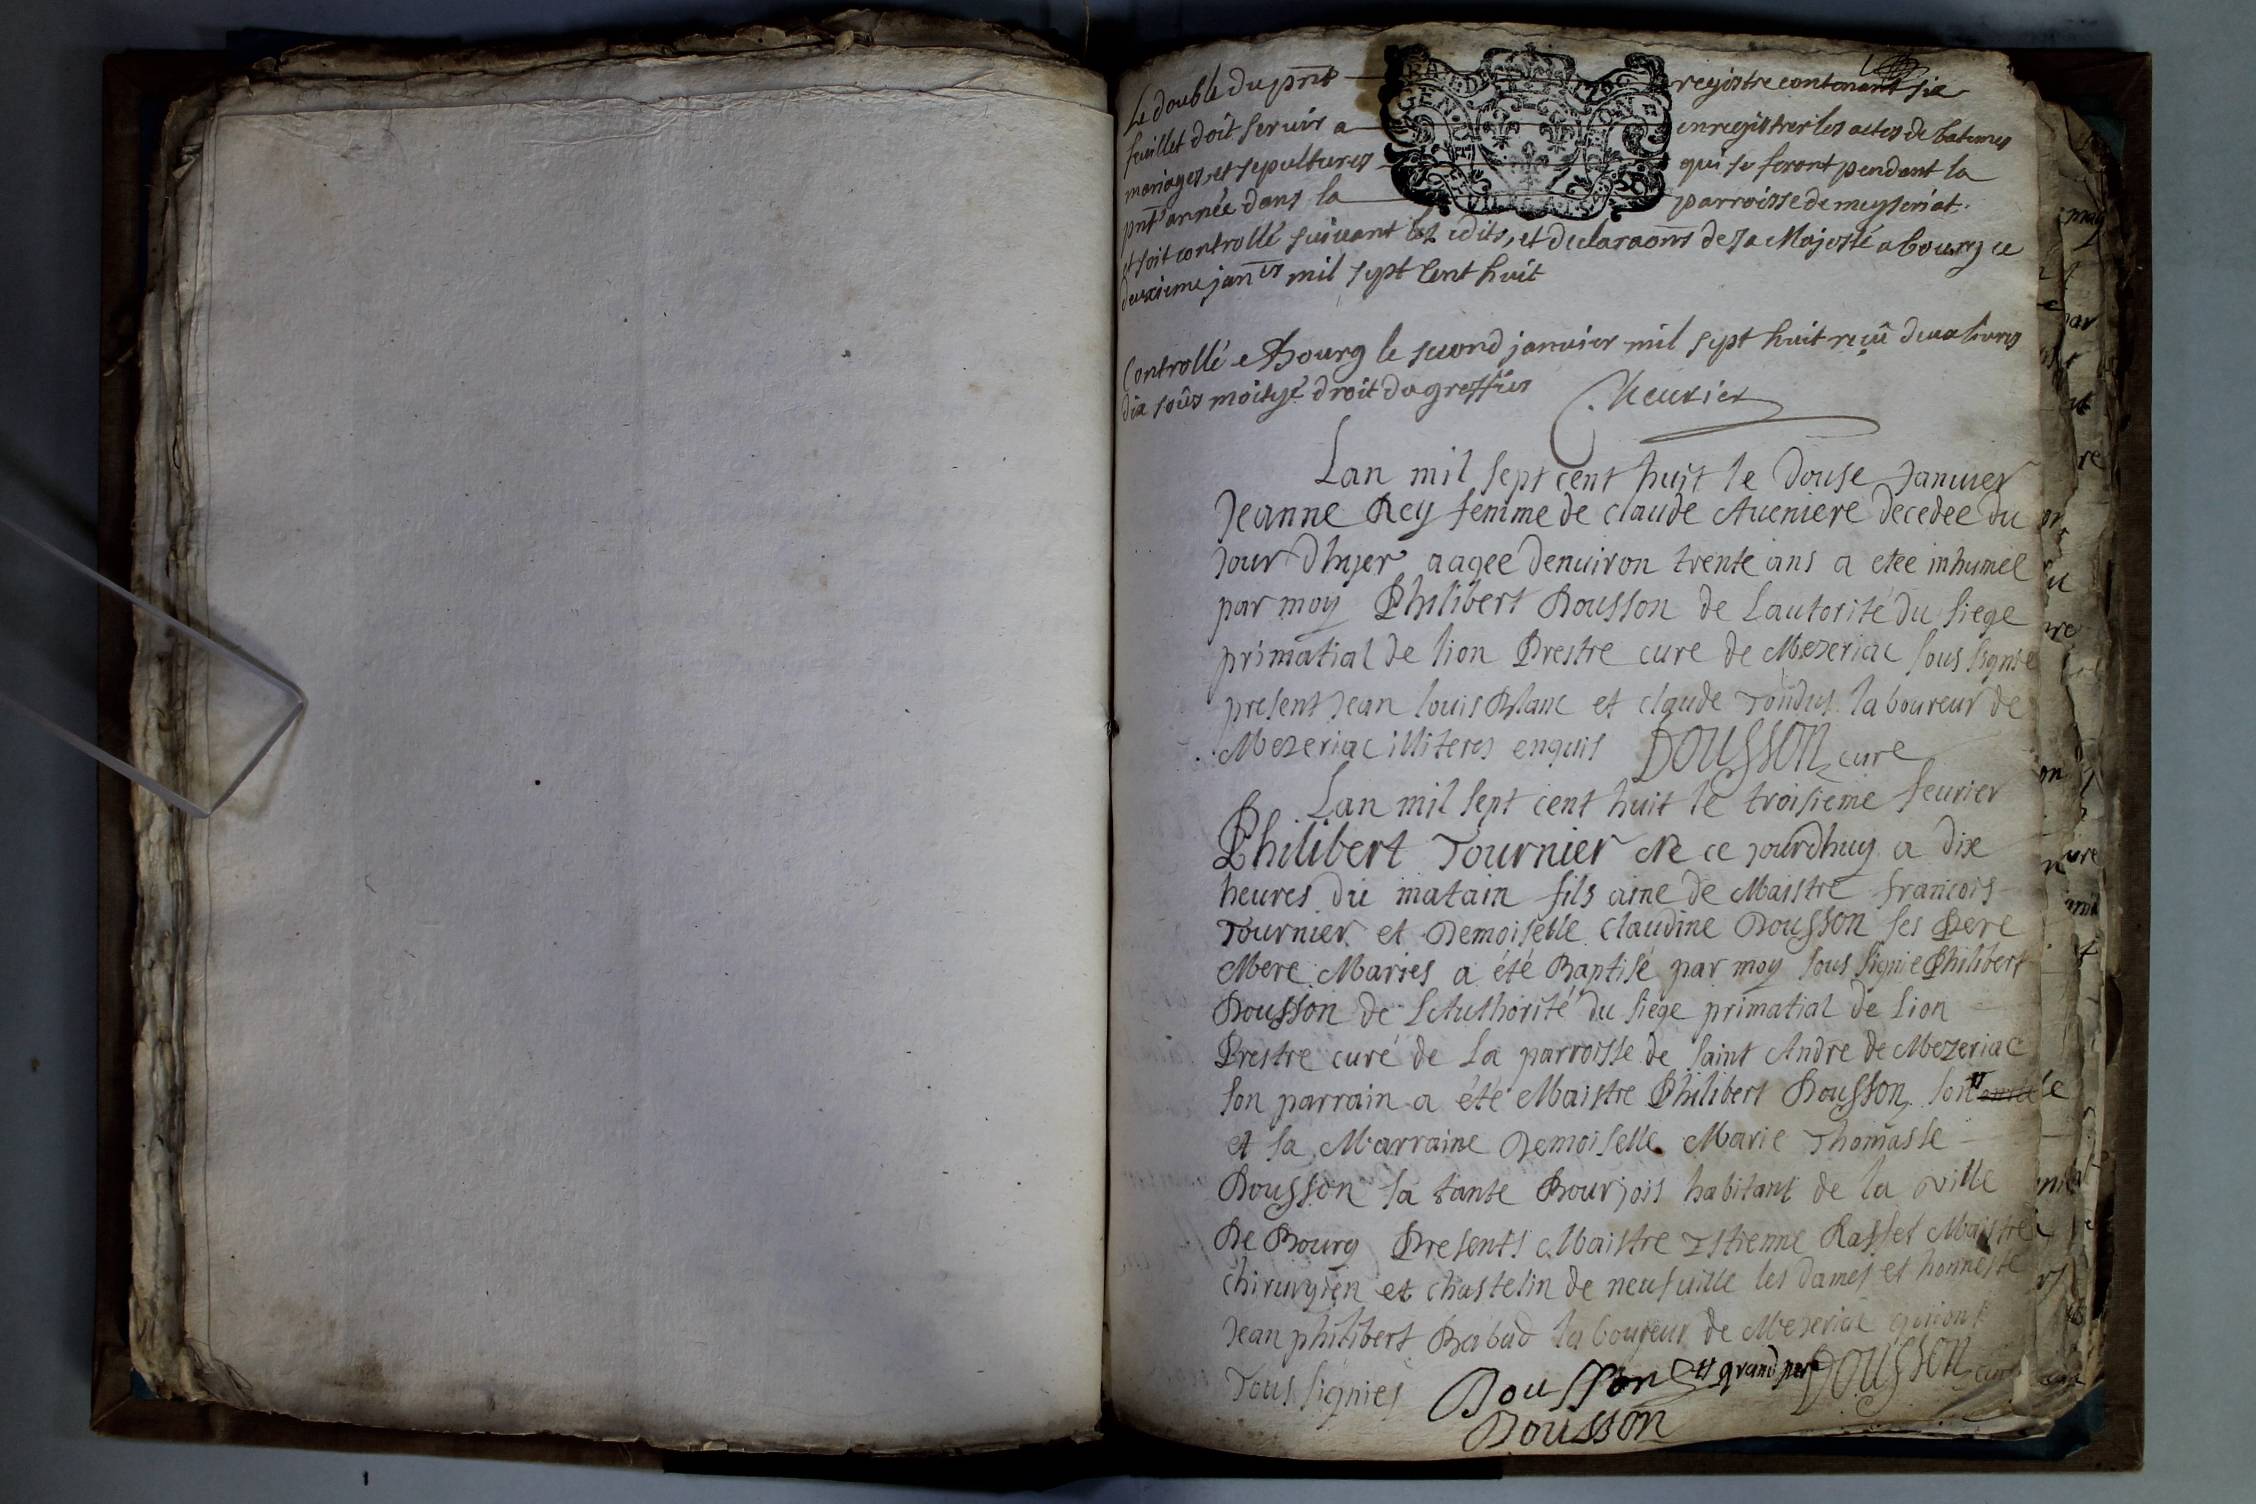 Le double du pñt registre contenant six
feuillet doit servir a enregistrer les actes de batemes
mariages et sepultures qui se feront pendant la
pñt année dans la parroisse de meyseriat
et soit controllé suivant les edits, et declaraons de sa Majesté a bourg ce
deuxieme janer mil sept cent huit
Controllé a Bourg le second janvier mil sept huit reçû deux livres
dix soûs moityé droit du greffier Cheurier
Lan mil sept cent huit le douse Januier
Jeanne Rey femme de claude Aueniere decedee du
jour dhyer aagee denuiron trente ans a etee inhumee
par moy Philibert Dousson de Lautorité du siege
primatial de lion Prestre cure de Mezeriac sous signie
present Jean louis Blanc et claude Tondus laboureur de
Mezeriac illiteres enquis DOUSSON cure
Lan mil sept cent huit le troisieme feurier
Philibert Tournier Ne ce jourdhuy a dix
heures du matain fils aine de Maistre francois
Tournier et Demoiselle Claudine Dousson ses Pere
Mere Maries a été Baptisé par moy sous signie Philibert
Dousson de LAuthorité du siege primatial de Lion
Prestre curé de La parroisse de saint Andre de Mezeriac
son parrain a été Maistre Philibert Dousson son
et sa Marraine Demoiselle Marie Thomasse
Dousson sa tante Bourjois habitant de la ville
De Bourg Presents Maistre Estienne Rasset Maistre
chirurgien et chastelin de neufuille les dames et honneste
Jean philibert Babad laboureur de Mezeriac qui ont
Tous signies Dousson et grand pere DOUSSON cure
Dousson